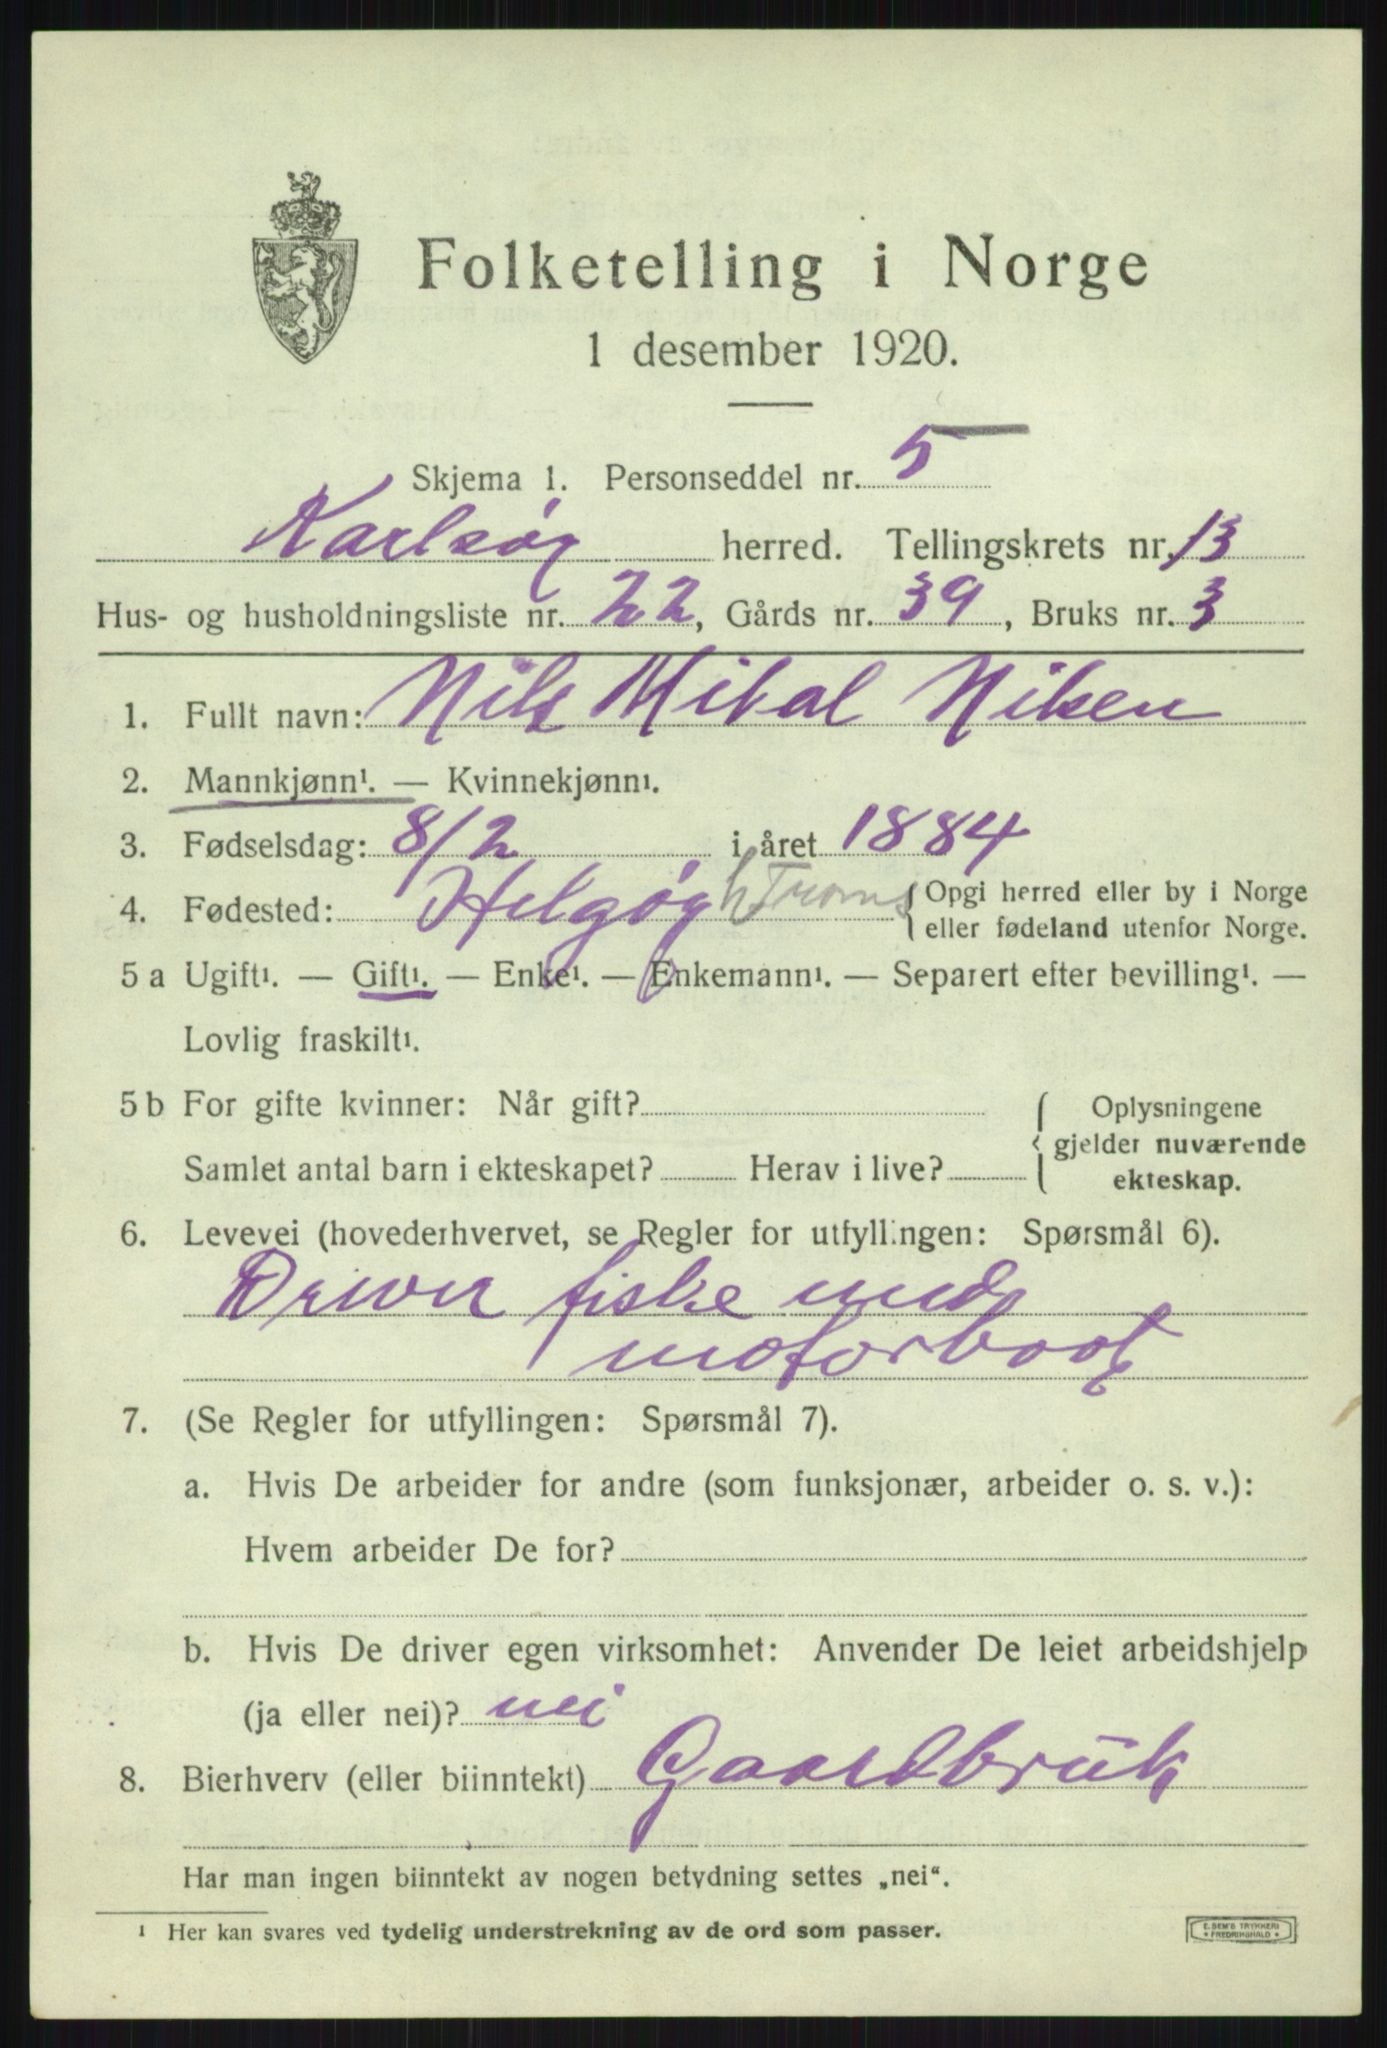 Folketelling i Norge
1 desember 1920.
Skjema 1. Personseddel nr. 5
Karlsøy herred. Tellingskrets nr. 13
Hus- og husholdningsliste nr. 22, Gårds nr. 39, Bruks nr. 3
1. Fullt navn: Nils Mikal Nilsen
2. Mannkjønn¹. — Kvinnekjønn¹.
3. Fødselsdag: 8/2 i året 1884
4. Fødested: Helgøy h Troms { Opgi herred eller by i Norge
eller fødeland utenfor Norge.
5 a Ugift¹. — Gift¹. — Enke¹. — Enkemann¹. — Separert efter bevilling¹. —
Lovlig fraskilt¹.
5 b For gifte kvinner: Når gift? { Oplysningene
gjelder nuværende
Samlet antal barn i ekteskapet? Herav i live? ekteskap.
6. Levevei (hovederhvervet, se Regler for utfyllingen: Spørsmål 6).
Driver fiske med
motorbaat
7. (Se Regler for utfyllingen: Spørsmål 7).
a. Hvis De arbeider for andre (som funksjonær, arbeider o. s. v.):
Hvem arbeider De for?
b. Hvis De driver egen virksomhet: Anvender De leiet arbeidshjelp
(ja eller nei)? nei
8. Bierhverv (eller biinntekt) Gaardbruk
Har man ingen biinntekt av nogen betydning settes „nei“.
¹ Her kan svares ved tydelig understrekning av de ord som passer.
E. SEM'S TRYKKERI
• FREDRIKSHALD •